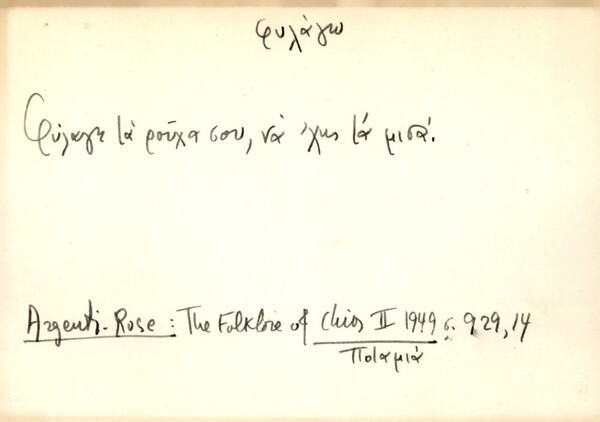 φυλάγω
Φύλαγε τὰ ροῦχα σου, νὰ 'χῃς τὰ μισά.
Argenti-Rose: The Folklore of Chios II 1949 σ. 929, 14
Ποταμιὰ